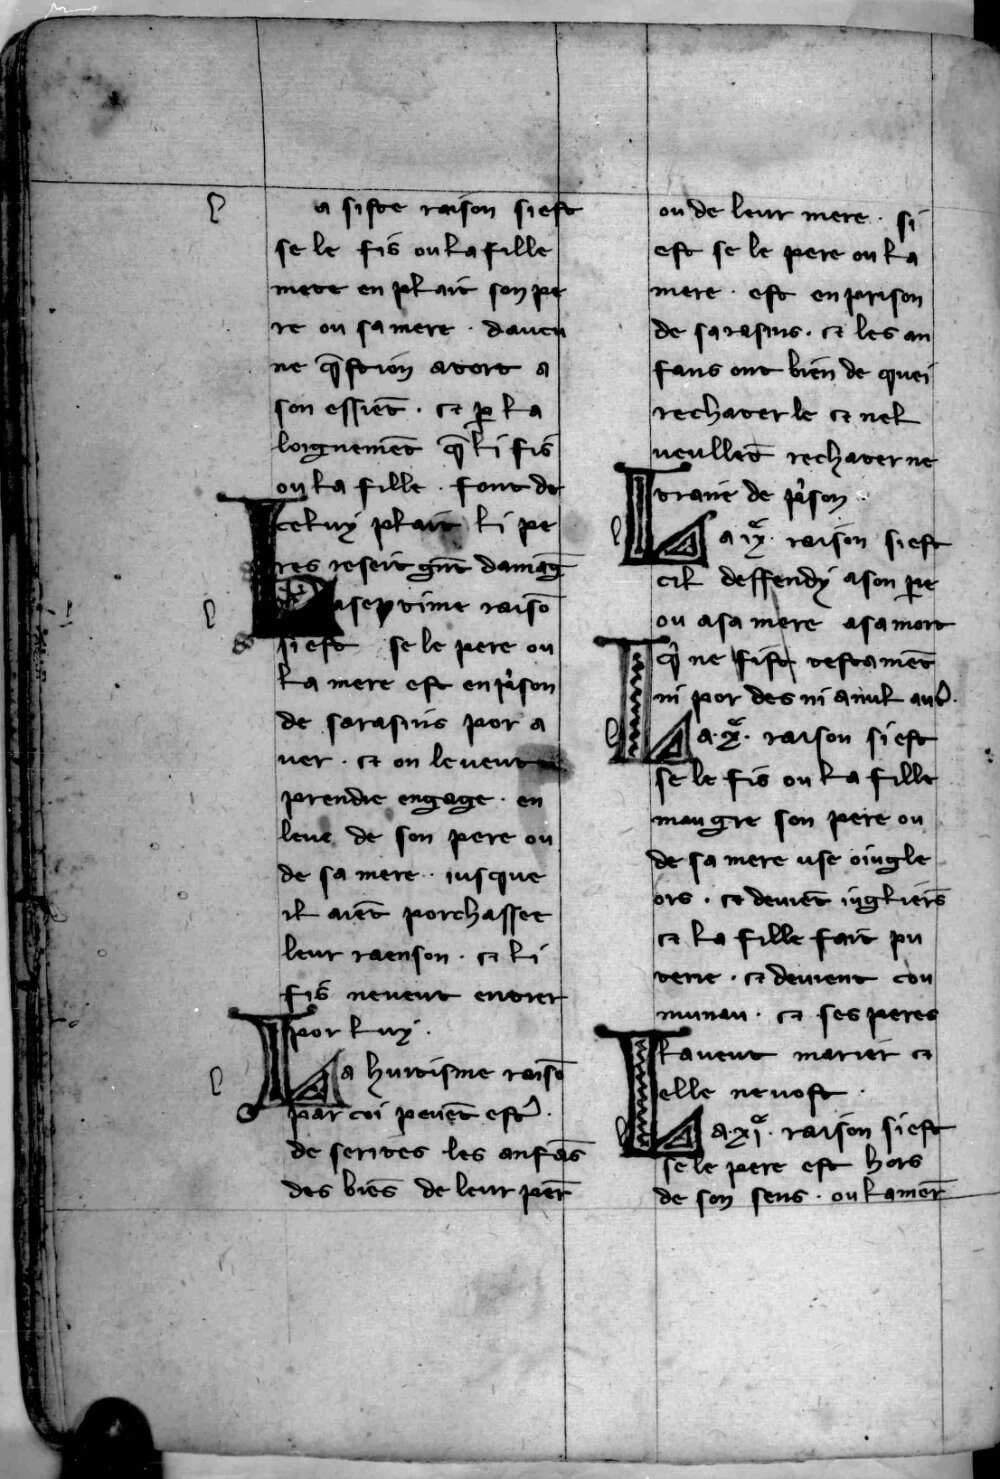 a siste raison si est
se le fis ou la fille
mete en plait son pe
re ou sa mere · daucu
ne q̄stion a tort a
son essient̄ · et ꝑ la
loignement̄ q̄ li fis
ou la fille · font de
celuy plait li pe
res reseit gnt̄ damaḡ
La septime raisō
si est se le pere ou
la mere est en pⁱson
de sarasins por a
ver · et on le veut
prendre en gage · en
leue de son pere ou
de sa mere · iusque
il aient̄ porchasset
leur raenson · et li
fis ne veut entrer
por luy ·
La huitisme raisō
par coi peuent̄ est̉ ·
de serites les anfās
des biēs de leur per̄
ou de leur mere · si
est se le pere ou la
mere · est en prison
de sarasins · et les an
fans ont bien de quei
rechater le et nel
veullent̄ rechater ne
traire de pⁱson ·
La ixᵃ · raison si est
cil deffendy a son pe
ou a sa mere a sa mort
qⁱ ne fist testament̄
ni por des ni a nul aut̉ ·
La · xᵃ · raison si est
se le fis ou la fille
maugre son pere ou
de sa mere use oiugle
ors · et deuient̄ iugliers
et la fille fait pu
terie · et deuient cou
munau · et ses peres
la veut marier et
elle ne vost ·
La · xiᵃ · raison si est
se le pere est hors
de son sens · ou la mer̄